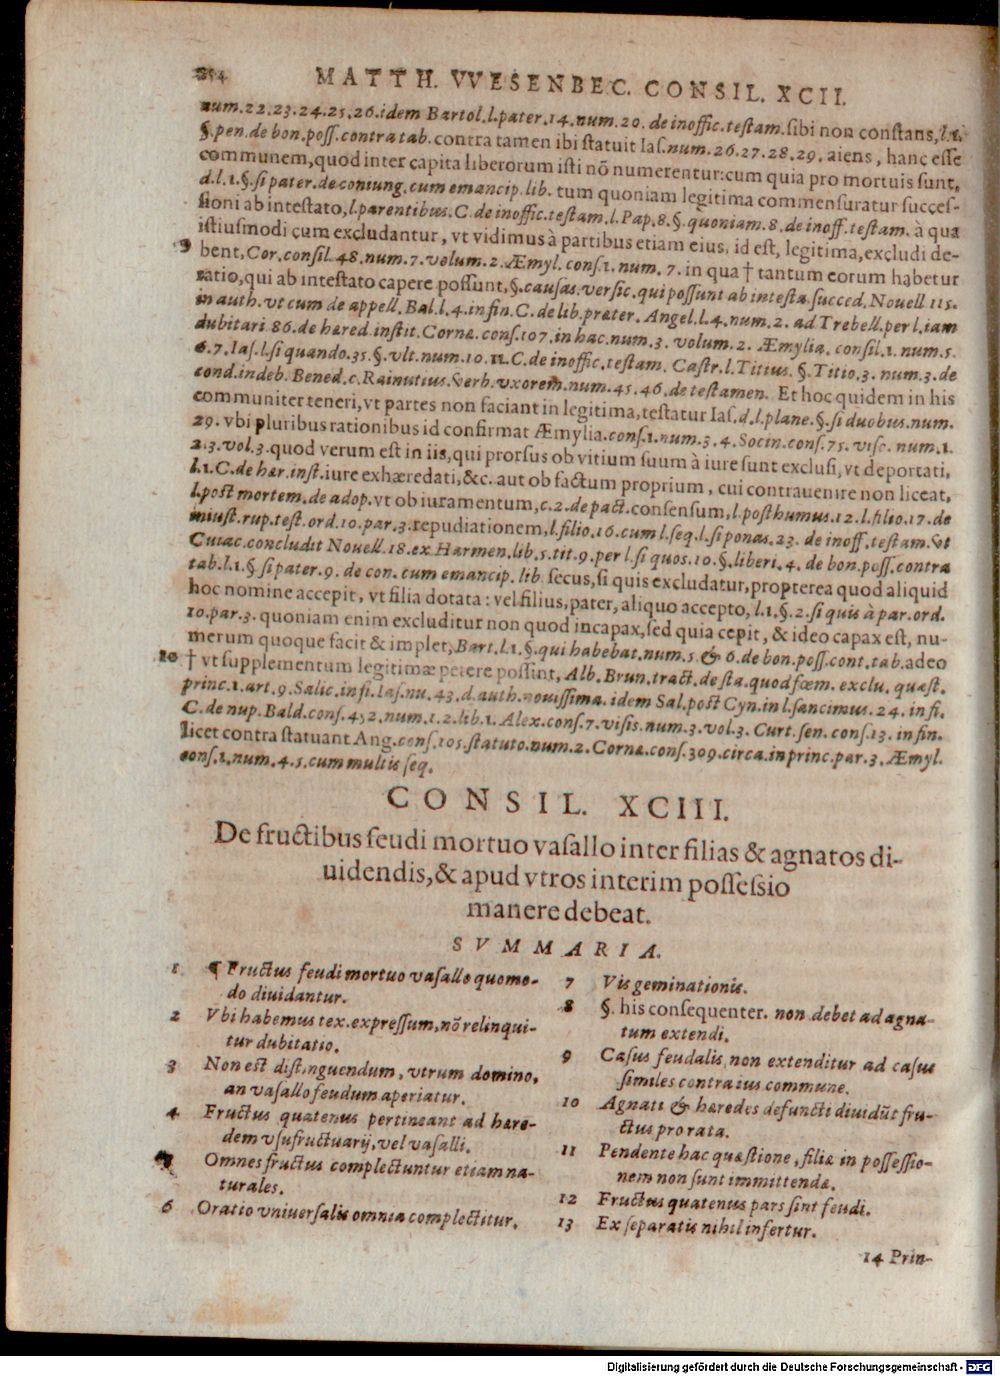 254 MATTH. VVESENBEC. CONSIL. XCII.
num.22.23.24.25.26.idem Bartol.l.pater.14.num.20. de inoffic.testam.sibi non constans,l.1.
§.pen.de bon.poss.contra tab.contra tamen ibi statuit Ias.num.26.27.28.29. aiens, hanc esse
communem,quod inter capita liberorum isti nō numerentur:cum quia pro mortuis sunt,
d.l.1.§.si pater.de coniung.cum emancip.lib. tum quoniam legitima commensuratur succes-
sioni ab intestato,l.parentibus.C.de inoffic.testam.l.Pap.8.§.quoniam.8.de inoff.testam. à qua
istiusmodi cum excludantur, vt vidimus à partibus etiam eius, id est, legitima,excludi de-
9 bent,Cor.consil.48.num.7.volum.2.Æmyl.cons.1.num.7. in qua † tantum eorum habetur
ratio,qui ab intestato capere possunt,§.causas.versic.qui possunt ab intesta.succed.Nouell 115.
in auth.vt cum de appell.Bal.l.4.in fin.C.de lib.præter. Angel.l.4.num.2. ad Trebell.per l.iam
dubitari.86.de hæred.instit.Corne.cons.107.in hac.num.3. volum.2. Æmylia. consil.1.num.5.
6.7.Ias.l.si quando.35.§.vlt.num.10.11.C.de inoffic.testam. Castr.l.Titius.§.Titio.3. num.3.de
cond.indeb.Bened.c.Rainutius.verb.vxorem.num.45.46.de testamen. Et hoc quidem in his
communiter teneri,vt partes non faciant in legitima,testatur Ias.d.l.plane.§.si duobus.num.
29. vbi pluribus rationibus id confirmat Æmylia.cons.1.num.3.4.Socin.cons.75. viso. num.1.
2.3.vol.3.quod verum est in iis,qui prorsus ob vitium suum à iure sunt exclusi,vt deportati,
l.1.C.de hær.inst.iure exhæredati,&c. aut ob factum proprium, cui contrauenire non liceat,
l.post mortem.de adop.vt ob iuramentum,c.2.de pact.consensum,l.posthumus.12.l.filio.17.de
iniust.rup.test.ord.10.par.3.repudiationem,l.filio.16.cum l.seq.l.si ponas.23. de inoff.testam.vt
Cuiac.concludit Nouell.18.ex Harmen.lib.5.tit.9.per l.si quos.10.§.liberi.4. de bon.poss.contra
tab.l.1.§.si pater.9. de con.cum emancip.lib. secus,si quis excludatur,propterea quod aliquid
hoc nomine accepit, vt filia dotata: vel filius,pater,aliquo accepto,l.1.§.2.si quis à par.ord.
10.par.3. quoniam enim excluditur non quod incapax,sed quia cepit, & ideo capax est, nu-
merum quoque facit & implet,Bart.l.1.§.qui habebat.num.5 & 6.de bon.poss.cont.tab.adeo
10 † vt supplementum legitimæ petere possint, Alb.Brun.tract.de sta.quod fœm. exclu. quæst.
princ.1.art.9.Salic.in fi.Ias.nu.43.d.auth.nouissima. idem Sal.post Cyn.in l.sancimus.24. in fi.
C.de nup.Bald.cons.452.num.1.2.lib.1.Alex.cons.7.visis.num.3.vol.3.Curt.sen.cons.13. in fin.
licet contra statuant Ang.cons.105.statuto.num.2.Corne.cons.309.circa.in princ.par.3.Æmyl.
cons.1.num.4.5.cum multis seq.
CONSIL. XCIII.
De fructibus feudi mortuo vasallo inter filias & agnatos di-
uidendis,& apud vtros interim possessio
manere debeat.
SVMMARIA.
1 ¶ Fructus feudi mortuo vasallo quomo-
do diuidantur.
2 Vbi habemus tex.expressum,nō relinqui-
tur dubitatio.
3 Non est distinguendum, vtrum domino,
an vasallo feudum aperiatur.
4 Fructus quatenus pertineant ad hære-
dem vsufructuarij,vel vasalli.
Omnes fructus complectuntur etiam na-
turales.
6 Oratio vniuersalis omnia complectitur.
7 Vis geminationis.
8 §. his consequenter. non debet ad agna-
tum extendi.
9 Casus feudalis non extenditur ad casus
similes contra ius commune.
10 Agnati & hæredes defuncti diuidūt fru-
ctus pro rata.
11 Pendente hac quæstione, filiæ in possessio-
nem non sunt immittendæ.
12 Fructus quatenus pars sint feudi.
13 Ex separatis nihil infertur.
14 Prin-
Digitalisierung gefördert durch die Deutsche Forschungsgemeinschaft - DFG